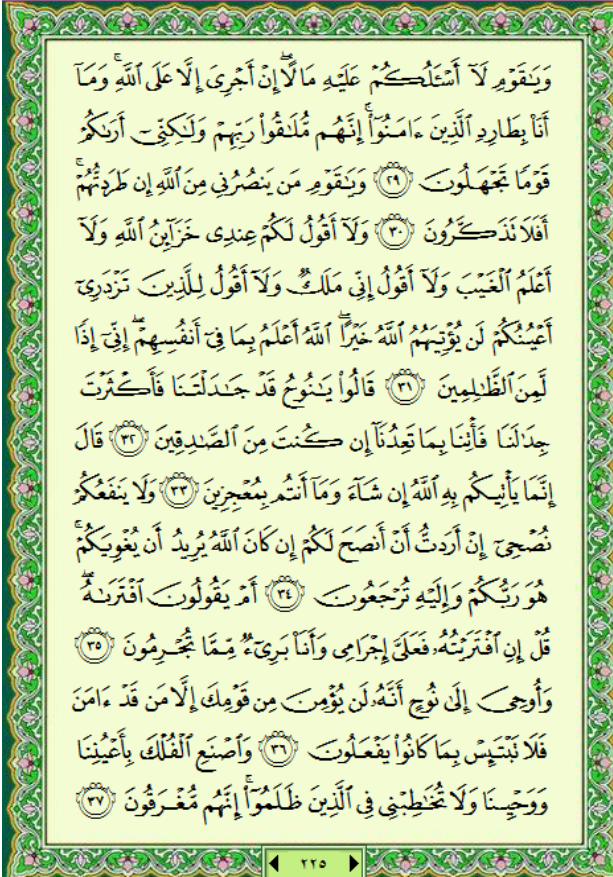 وَيَٰقَوْمِ لَآ أَسْـَٔلُكُمْ عَلَيْهِ مَالًا ۖ إِنْ أَجْرِىَ إِلَّا عَلَى ٱللَّهِ ۚ وَمَآ
أَنَا۠ بِطَارِدِ ٱلَّذِينَ ءَامَنُوٓا۟ ۚ إِنَّهُم مُّلَٰقُوا۟ رَبِّهِمْ وَلَٰكِنِّىٓ أَرَىٰكُمْ
قَوْمًا تَجْهَلُونَ ٢٩ وَيَٰقَوْمِ مَن يَنصُرُنِى مِنَ ٱللَّهِ إِن طَرَدتُّهُمْ ۚ
أَفَلَا تَذَكَّرُونَ ٣٠ وَلَآ أَقُولُ لَكُمْ عِندِى خَزَآئِنُ ٱللَّهِ وَلَآ
أَعْلَمُ ٱلْغَيْبَ وَلَآ أَقُولُ إِنِّى مَلَكٌ وَلَآ أَقُولُ لِلَّذِينَ تَزْدَرِىٓ
أَعْيُنُكُمْ لَن يُؤْتِيَهُمُ ٱللَّهُ خَيْرًا ۖ ٱللَّهُ أَعْلَمُ بِمَا فِىٓ أَنفُسِهِمْ ۖ إِنِّىٓ إِذًا
لَّمِنَ ٱلظَّٰلِمِينَ ٣١ قَالُوا۟ يَٰنُوحُ قَدْ جَٰدَلْتَنَا فَأَكْثَرْتَ
جِدَٰلَنَا فَأْتِنَا بِمَا تَعِدُنَآ إِن كُنتَ مِنَ ٱلصَّٰدِقِينَ ٣٢ قَالَ
إِنَّمَا يَأْتِيكُم بِهِ ٱللَّهُ إِن شَآءَ وَمَآ أَنتُم بِمُعْجِزِينَ ٣٣ وَلَا يَنفَعُكُمْ
نُصْحِىٓ إِنْ أَرَدتُّ أَنْ أَنصَحَ لَكُمْ إِن كَانَ ٱللَّهُ يُرِيدُ أَن يُغْوِيَكُمْ ۚ
هُوَ رَبُّكُمْ وَإِلَيْهِ تُرْجَعُونَ ٣٤ أَمْ يَقُولُونَ ٱفْتَرَىٰهُ ۖ
قُلْ إِنِ ٱفْتَرَيْتُهُۥ فَعَلَىَّ إِجْرَامِى وَأَنَا۠ بَرِىٓءٌ مِّمَّا تُجْرِمُونَ ٣٥
وَأُوحِىَ إِلَىٰ نُوحٍ أَنَّهُۥ لَن يُؤْمِنَ مِن قَوْمِكَ إِلَّا مَن قَدْ ءَامَنَ
فَلَا تَبْتَئِسْ بِمَا كَانُوا۟ يَفْعَلُونَ ٣٦ وَٱصْنَعِ ٱلْفُلْكَ بِأَعْيُنِنَا
وَوَحْيِنَا وَلَا تُخَٰطِبْنِى فِى ٱلَّذِينَ ظَلَمُوٓا۟ ۚ إِنَّهُم مُّغْرَقُونَ ٣٧
٢٢٥